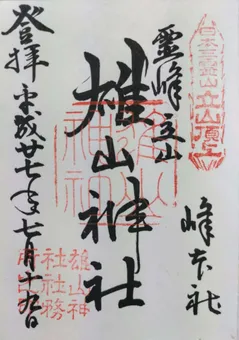 日本三霊山立山頂上
霊峰立山
峰本社
雄山神社
雄山神
社社務
所之印
登拝
平成廿七年七月十九日